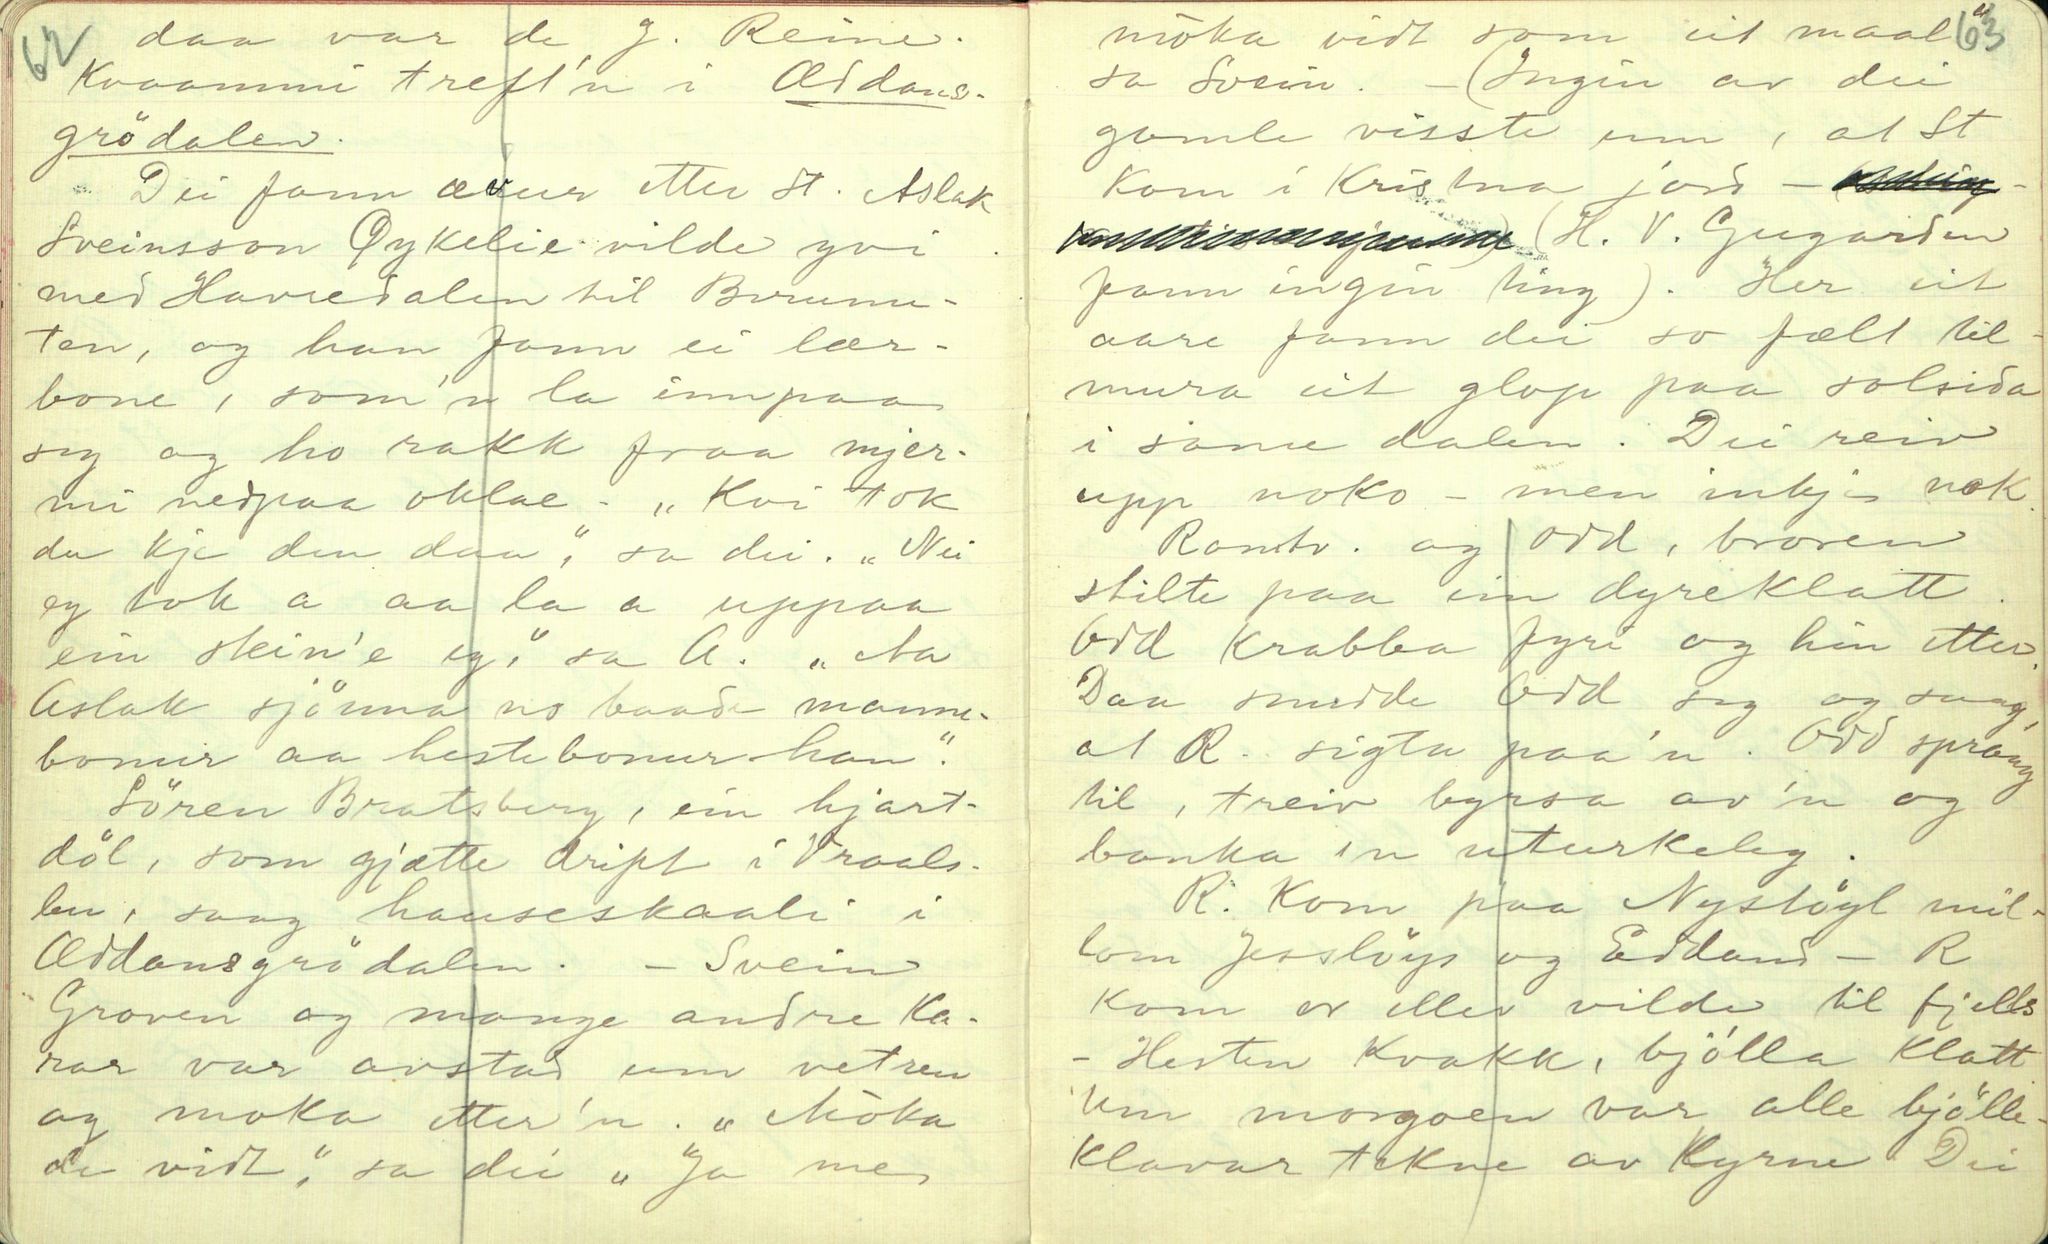 62
daa var de J. Reine-
Kvaammi treft'n i Øddans-
grödalen.
Dei fann ævur etter St. Aslak
Sveinsson Øykelie vilde yvi
med Havredalen til Bruni-
ten, og han fann ei lær-
bone, som'n la innpaa
seg og ho rakk fraa mjer-
mi nedpaa oklae - „Kvi tok
du kje den daa", sa dei. „Nei
eg tok a aa la a uppaa
ein stein'e eg", sa A. „Aa
Aslak sjönna no baade manne-
bonur aa hestebonur han".
Sören Bratsberg, ein hjart-
döl, som gjætte drift i Vraals-
len, saag hauseskaali i
Øddansgrödalen. - Svein
Groven og mange andre ka-
rar var avstad um vetren
og moka etter'n. „Möka
de vidt", sa dei „Ja me
63
möka vidt som eit maal"
sa Svein. - (Ingin av dei
gamle visste um, at St
kom i Kristna jord -
(H. V. Gugarden
fann ingin ting). Her eit
aare fann dei so fælt til-
mura eit glop paa solsida
i same dalen. Dei reiv
upp noko - men inkje nok.
Rantv. og Odd, broren
stilte paa ein dyreklatt.
Odd krabba fyri og hin etter.
Daa snudde Odd seg og saag,
at R. sigta paa'n. Odd spraang
til, treiv byrsa av'n og
banka 'n uturkeleg.
R. kom paa Nystöyl mil-
lom Jesslöys og Eddand - R
kom er eller vilde til fjells
- Hesten Kvakk, bjölla Klatt
Um morgoen var alle bjölle-
klavar tekne av kyrne Dei